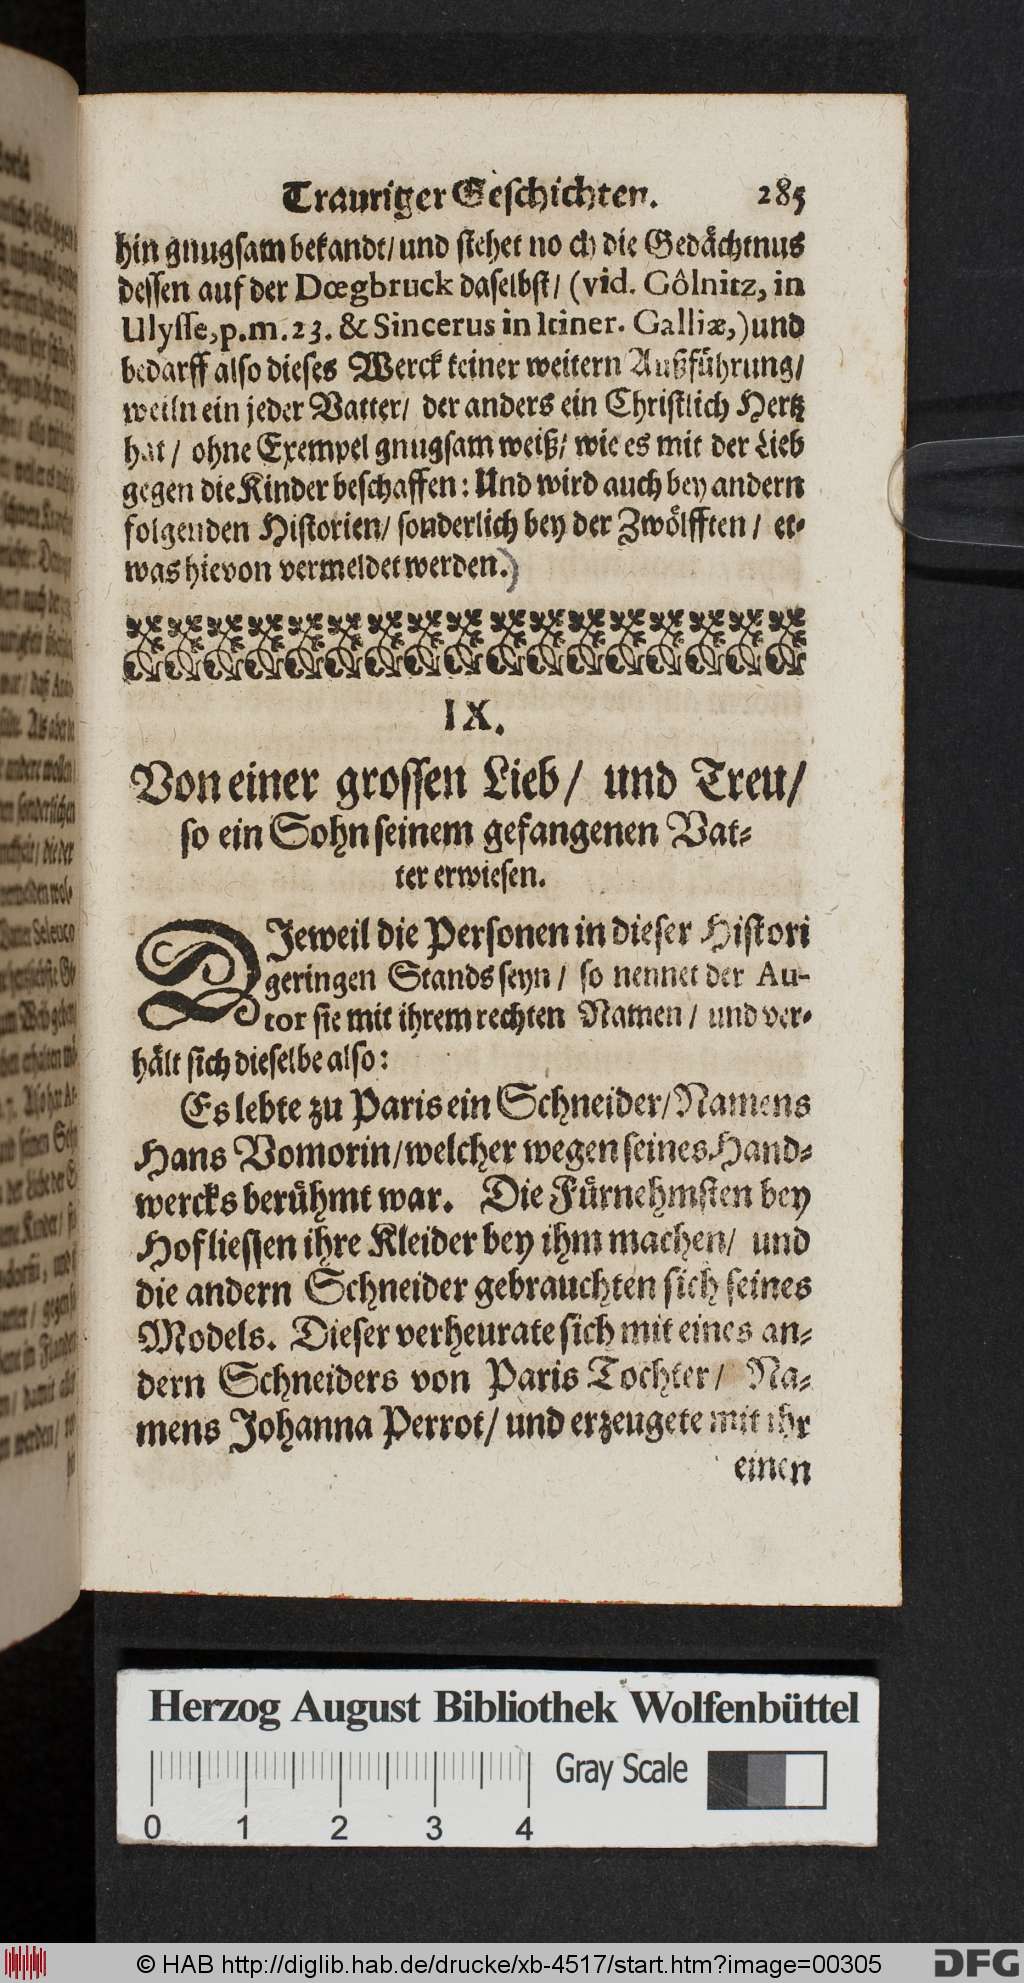 Trauriger Geschichten. 285
hin gnugsam bekandt/ und stehet noch die Gedächtnus
dessen auf der Dœgbruck daselbst/ (vid. Gôlnitz, in
Ulysse, p. m. 23. & Sincerus in Itiner. Galliæ,) und
bedarff also dieses Werck keiner weitern Außführung/
weiln ein jeder Vatter/ der anders ein Christlich Hertz
hat/ ohne Exempel gnugsam weiß/ wie es mit der Lieb
gegen die Kinder beschaffen: Und wird auch bey andern
folgenden Historien/ sonderlich bey der Zwölfften/ et-
was hievon vermeldet werden.)
IX.
Von einer grossen Lieb/ und Treu/
so ein Sohn seinem gefangenen Vat-
ter erwiesen.
DJeweil die Personen in dieser Histori
geringen Stands seyn/ so nennet der Au-
tor sie mit ihrem rechten Namen/ und ver-
hält sich dieselbe also:
Es lebte zu Paris ein Schneider/ Namens
Hans Vomorin/ welcher wegen seines Hand-
wercks berühmt war. Die Fürnehmsten bey
Hof liessen ihre Kleider bey ihm machen/ und
die andern Schneider gebrauchten sich seines
Models. Dieser verheurate sich mit eines an-
dern Schneiders von Paris Tochter/ Na-
mens Johanna Perrot/ und erzeugete mit ihr
einen
Herzog August Bibliothek Wolfenbüttel
Gray Scale
0 1 2 3 4
© HAB http://diglib.hab.de/drucke/xb-4517/start.htm?image=00305
DFG